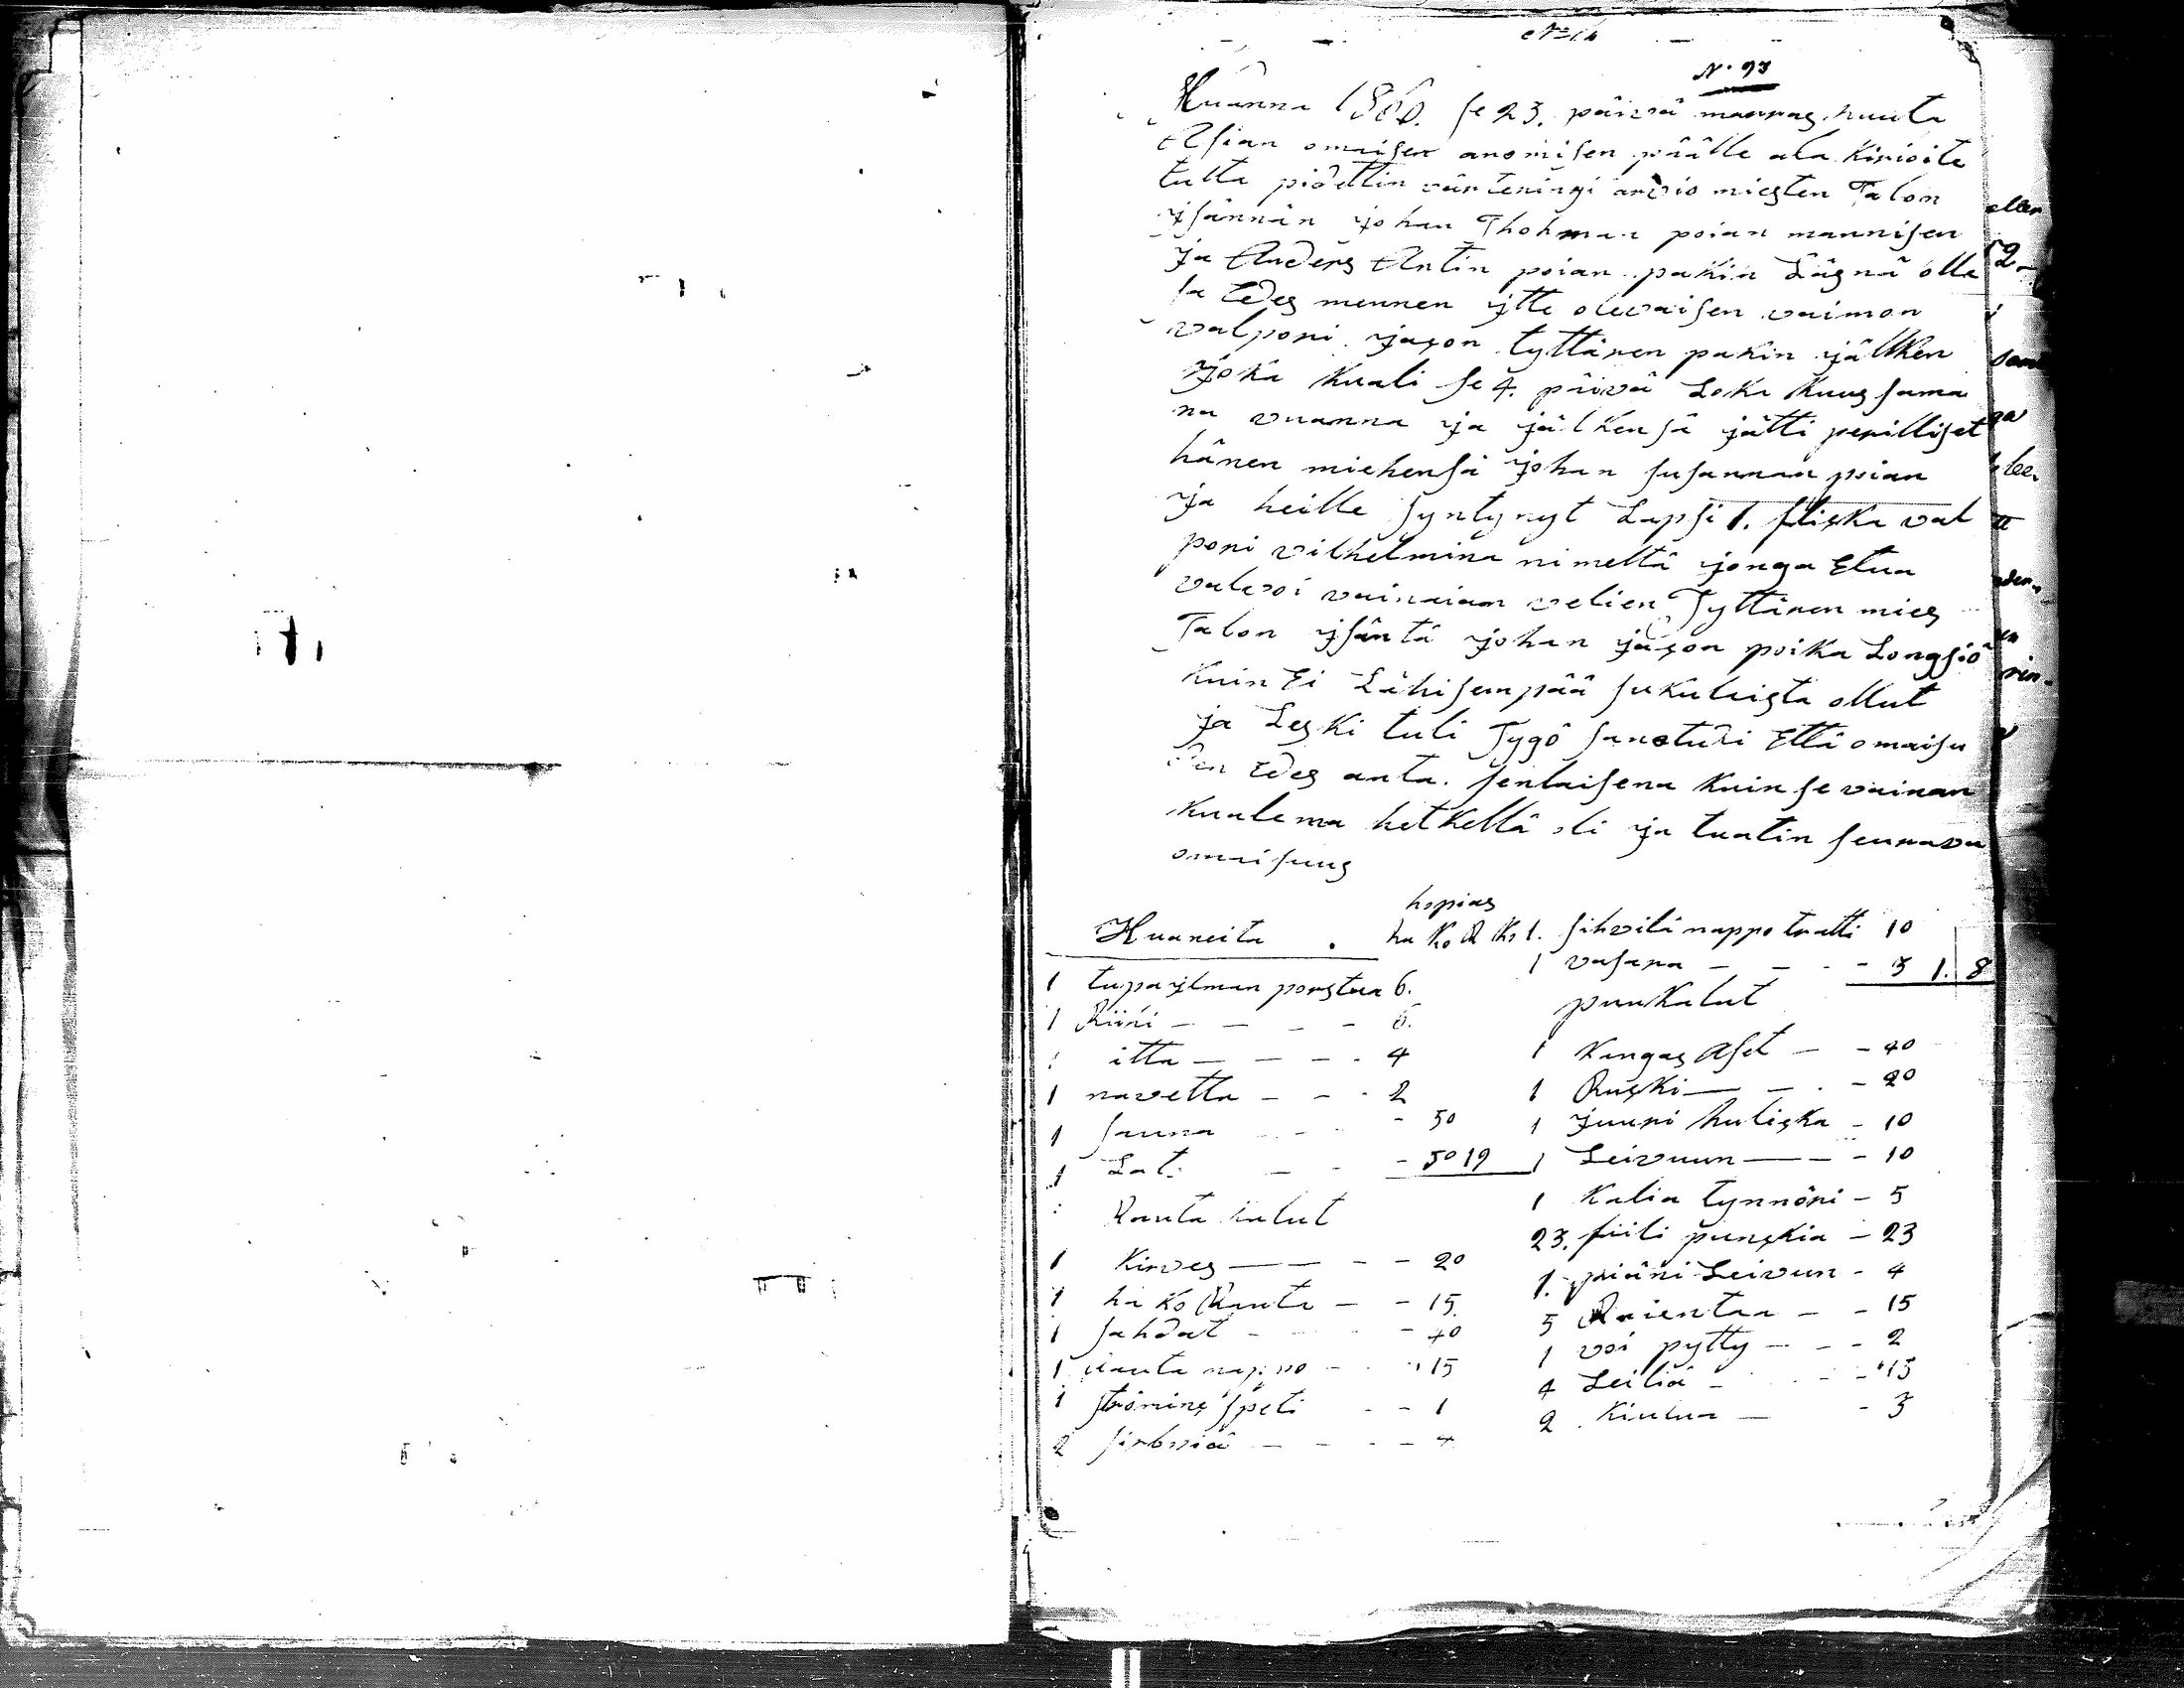 N. 93
Wuanna 1860. se 23. päivä marras kuuta
Asian omaisen anomisen päälle ala kirioite
tulta pidettin värteringi arvio miesten Talon
isännän johan Thohman poian mannisen
ja Anders Antin poian pakin Läsnä olle
sa Edes mennen itte olevaisen vaimon
valpori jason tyttären pakin jälkken
joka kuali se 4. päivä Loka kuus sama
na vuanna ja jälkensä jätti perilliset
hänen miehensä johan susannan poian
ja heille syntynyt Lapsi 1. fliska val
pori vilhelmina nimeltä jonga Etua
valvoi vainaian velien Tyttären mies
Talon isäntä johan jason poika Longsiö
kuin Ei Lähisempää sukulaista ollut
ja Leski tuli Tygö sanotuxi Että omaisu
den Edes anta. senlaisena kuin se vainan
kualema hetkellä oli ja tuatin seurava
omaisuus
hopias
Huaneita . Ru Ko R Ko
1 tupa ilman porstua 6.
1 Riihi — — — 6.
1 itta — — — 4
1 navetta — — 2
1 sauna — 50
1 Lat. — — 50 19
Rauta kalut
1 kirves — — — 20
1 hako Rauta — — 15.
1 sahdat — — 40
1 Rauta nappo — 15
1 ströming speti — — 1
2 sirbviä — — — 4
1. sihvilä nappo tratti 10
1 vasara — — — 3 1. 8
puukalut
1 kangas aset — — 40
1 Ruski — — — 20
1 juuri kuliska — 10
1 Leivuun — — — 10
1 kalia tynnöri — 5
23. fiili punskia — 23
1. piäni Leivuun - 4
5 Raientaa — — 15
1 voi pytty — — — 2
4 Leiliä — — — 15
2 kiulua — — 3